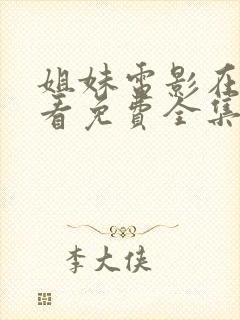 姐妹雷影在
看免费全集
李大侠